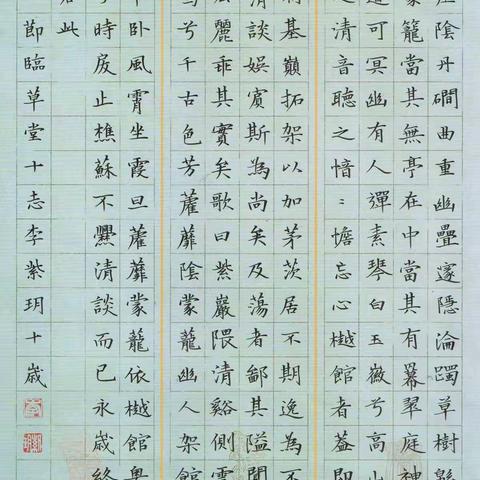 陰丹磵曲重幽疊邃隱淪躅草樹緜
蒙籠當其無亭在中當其有羃翠庭神
可冥幽有人彈素琴白玉徽兮高山
之清音聽之愔〻憺忘心樾館者葢即
基巔拓架以加茅茨居不期逸為不
清談娛賓斯為尚矣及蕩者鄙其隘閒
麗乖其實矣歌曰紫巖隈清谿側雲
兮千古色芳蘿蘼陰蒙蘢幽人架館
卧風霄坐霞旦蘿蘼蒙蘢依樾館粵
時止樵蘇不爨清談而已永歲終
此
節臨草堂十志李紫玥十歲